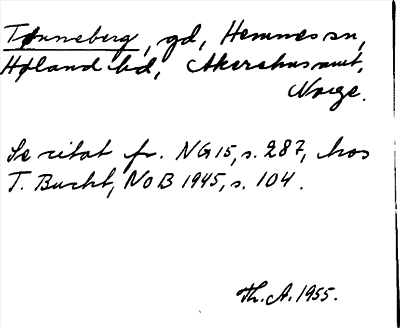 Tønneberg, gd, Hemnes sn,
Høland hd, Akershus amt,
Norge.
Se citat fr. NG 15, s. 287, hos
T. Bucht, NoB 1945, s. 104.
Th. A. 1955.